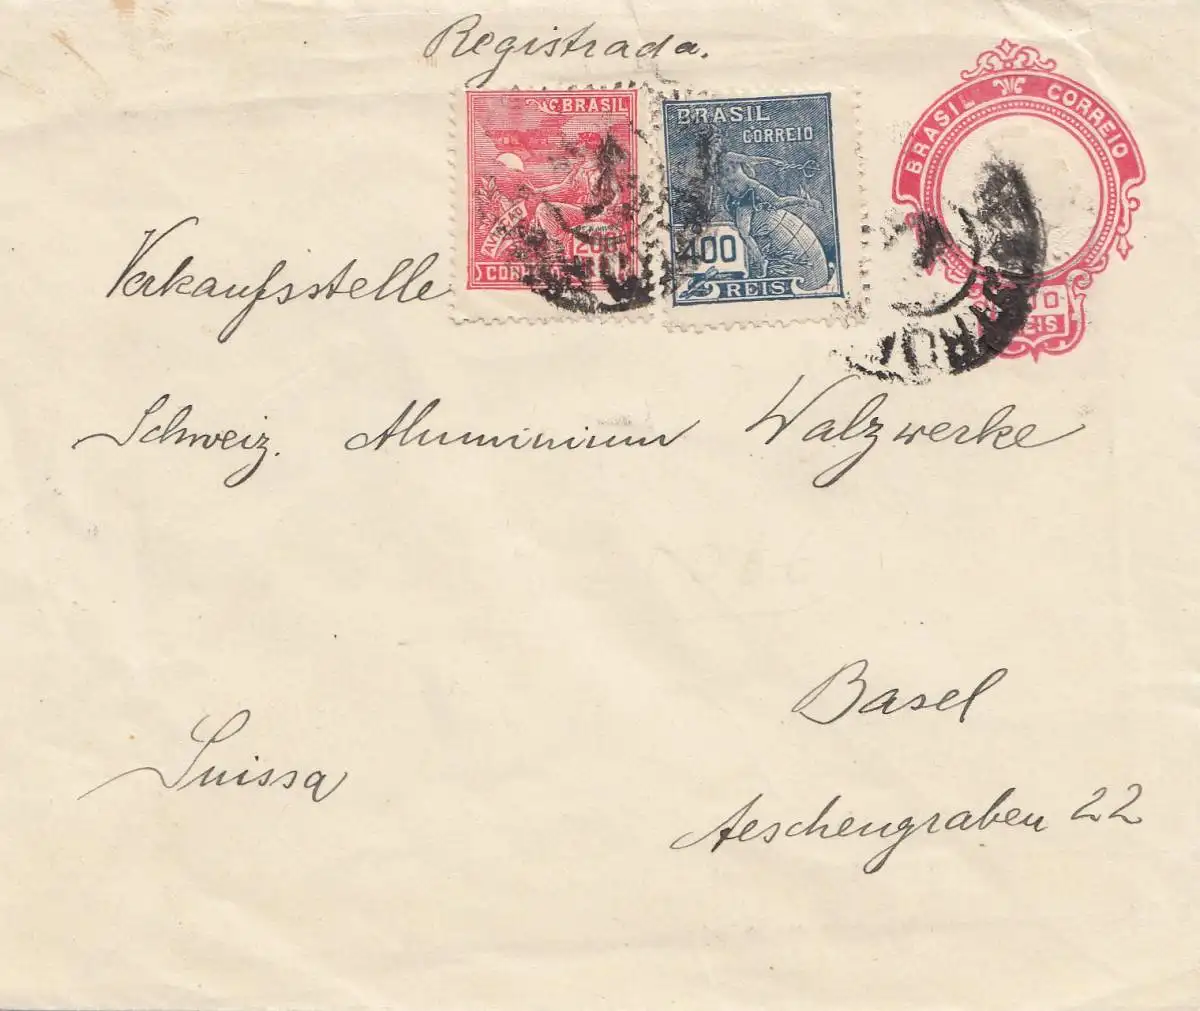 Registrada.
BRASIL
AVIAÇÃO
200
CORREIO
BRASIL
CORREIO
400
REIS
BRASIL CORREIO
REIS
Verkaufsstelle
Schweiz. Aluminium Walzwerke
Basel
Suissa
Aeschengraben 22